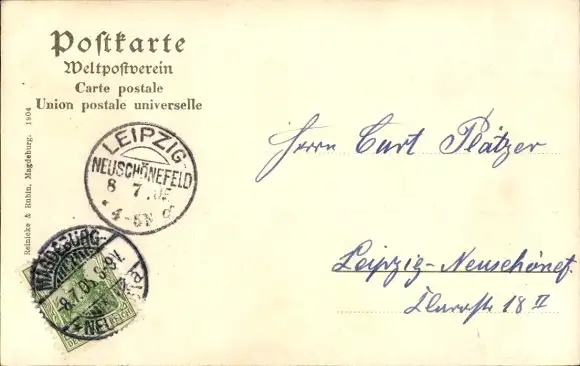 Postkarte
Weltpostverein
Carte postale
Union postale universelle
Reinicke & Rubin, Magdeburg. 1904
LEIPZIG-
NEUSCHÖNEFELD
8 7. 05
* 4-5N d
MAGDEBURG-
8.7.05. 8-9V.
NEU
Herrn Curt Plätzer
Leipzig-Neuschönef.
Clarastr 18 II